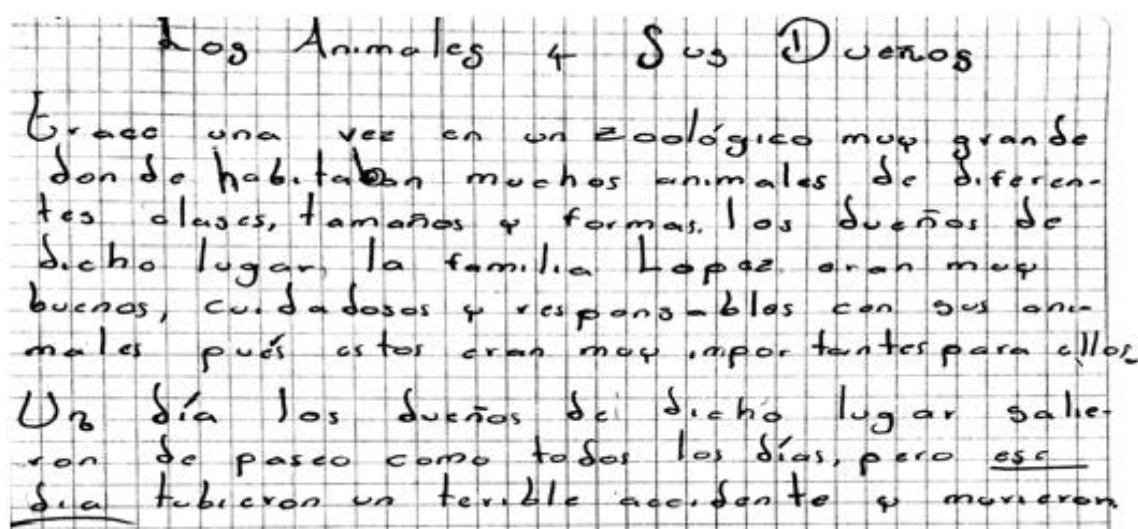 Los Animales y Sus Dueños
Erase una vez en un zoológico muy grande
donde habitaban muchos animales de diferen-
tes clases, tamaños y formas. los dueños de
dicho lugar, la familia Lopez eran muy
buenos, cuidadosos y responsables con sus ani-
males pués estos eran muy importantes para ellos.
Un día los dueños de dicho lugar salie-
ron de paseo como todos los días, pero ese
dia tubieron un terible accidente y murieron